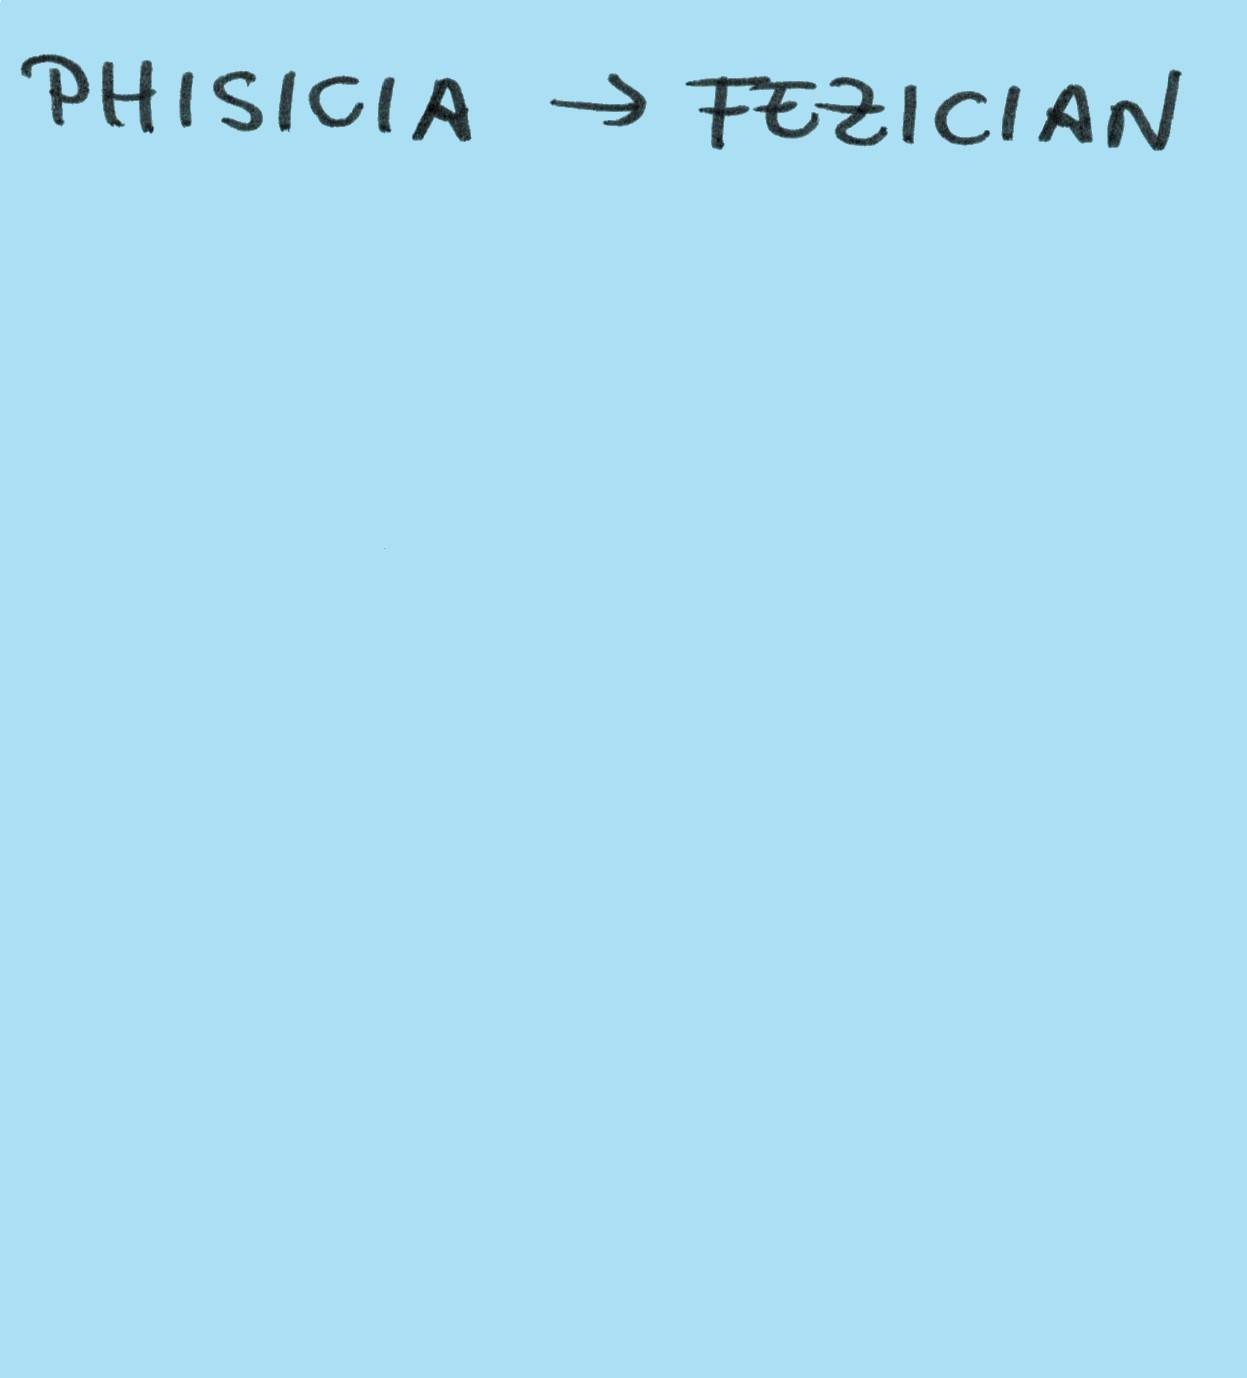 PHISICIA → FEZICIAN